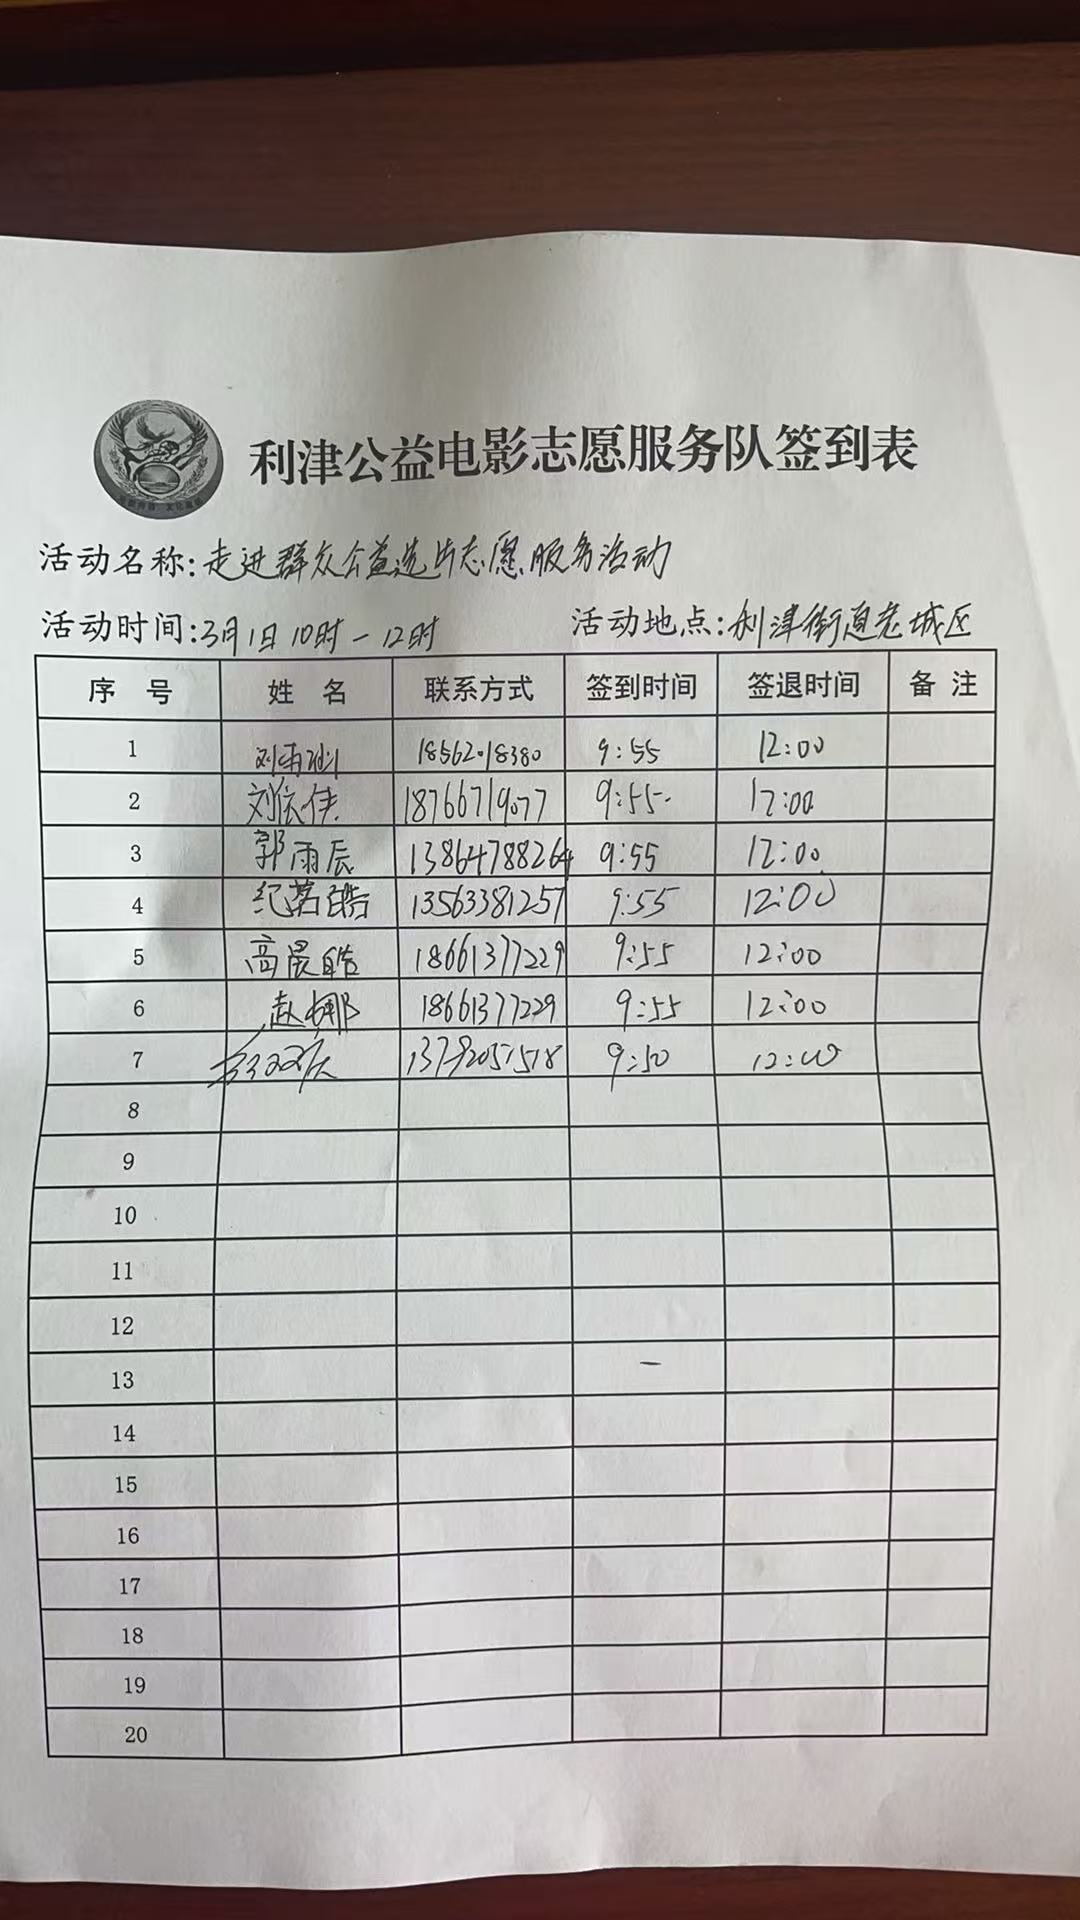 利津公益电影志愿服务队签到表
活动名称:走进群众公益选片志愿服务活动
活动时间:3月1日10时-12时 活动地点:利津街道老城区
序号 姓名 联系方式 签到时间 签退时间 备注
1 18562018380 9:55 12:00
2 刘宸佳 18766719077 9:55 12:00
3 郭雨辰 13864788264 9:55 12:00
4 纪茗皓 13563381257 9:55 12:00
5 高晨皓 18661377229 9:55 12:00
6 赵娜 18661377229 9:55 12:00
7 13792051518 9:50 12:00
8
9
10
11
12
13 -
14
15
16
17
18
19
20